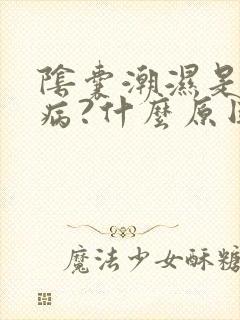 陰囊潮濕是
病?什麼原因
魔法少女酥糖